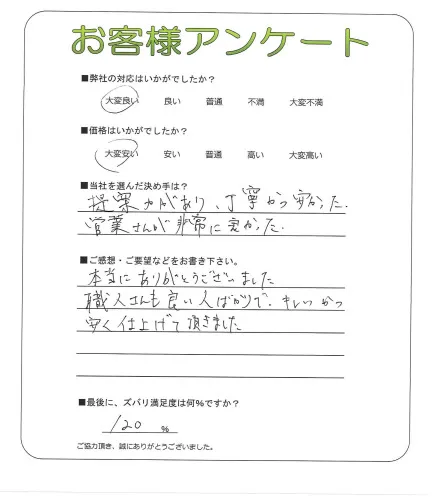 お客様アンケート
■弊社の対応はいかがでしたか?
大変良い 良い 普通 不満 大変不満
■価格はいかがでしたか?
大変安い 安い 普通 高い 大変高い
■当社を選んだ決め手は?
提案力があり、丁寧かつ安かった.
営業さんが非常に良かった.
■ご感想・ご要望などをお書き下さい。
本当にありがとうございました
職人さんも良い人ばかりで、キレイかつ
安く仕上げて頂きました
■最後に、ズバリ満足度は何%ですか?
120 %
ご協力頂き、誠にありがとうございました。